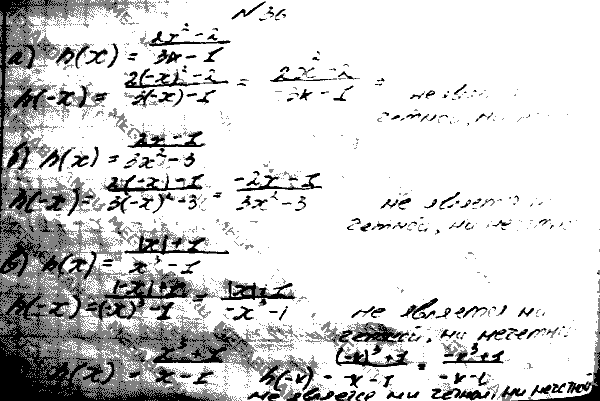 N 36
а) h(x) = (2x² - 2)/(3x - 1)
h(-x) = (2(-x)² - 2)/(3(-x) - 1) = (2x² - 2)/(-3x - 1) = не
четной, ни
б) h(x) = (2x - 1)/(3x² - 3)
h(-x) = (2(-x) - 1)/(3(-x)² - 3) = (-2x - 1)/(3x² - 3) не является ни
четной, ни нечетн
в) h(x) = (|x| + 1)/(x³ - 1)
h(-x) = (|-x| + 1)/((-x)³ - 1) = (|x| + 1)/(-x³ - 1) не является ни
четной, ни нечетн
h(x) = (x³ + 1)/(x - 1) h(-x) = ((-x)³ + 1)/(-x - 1) = (-x³ + 1)/(-x - 1)
не является ни четной, ни нечетной